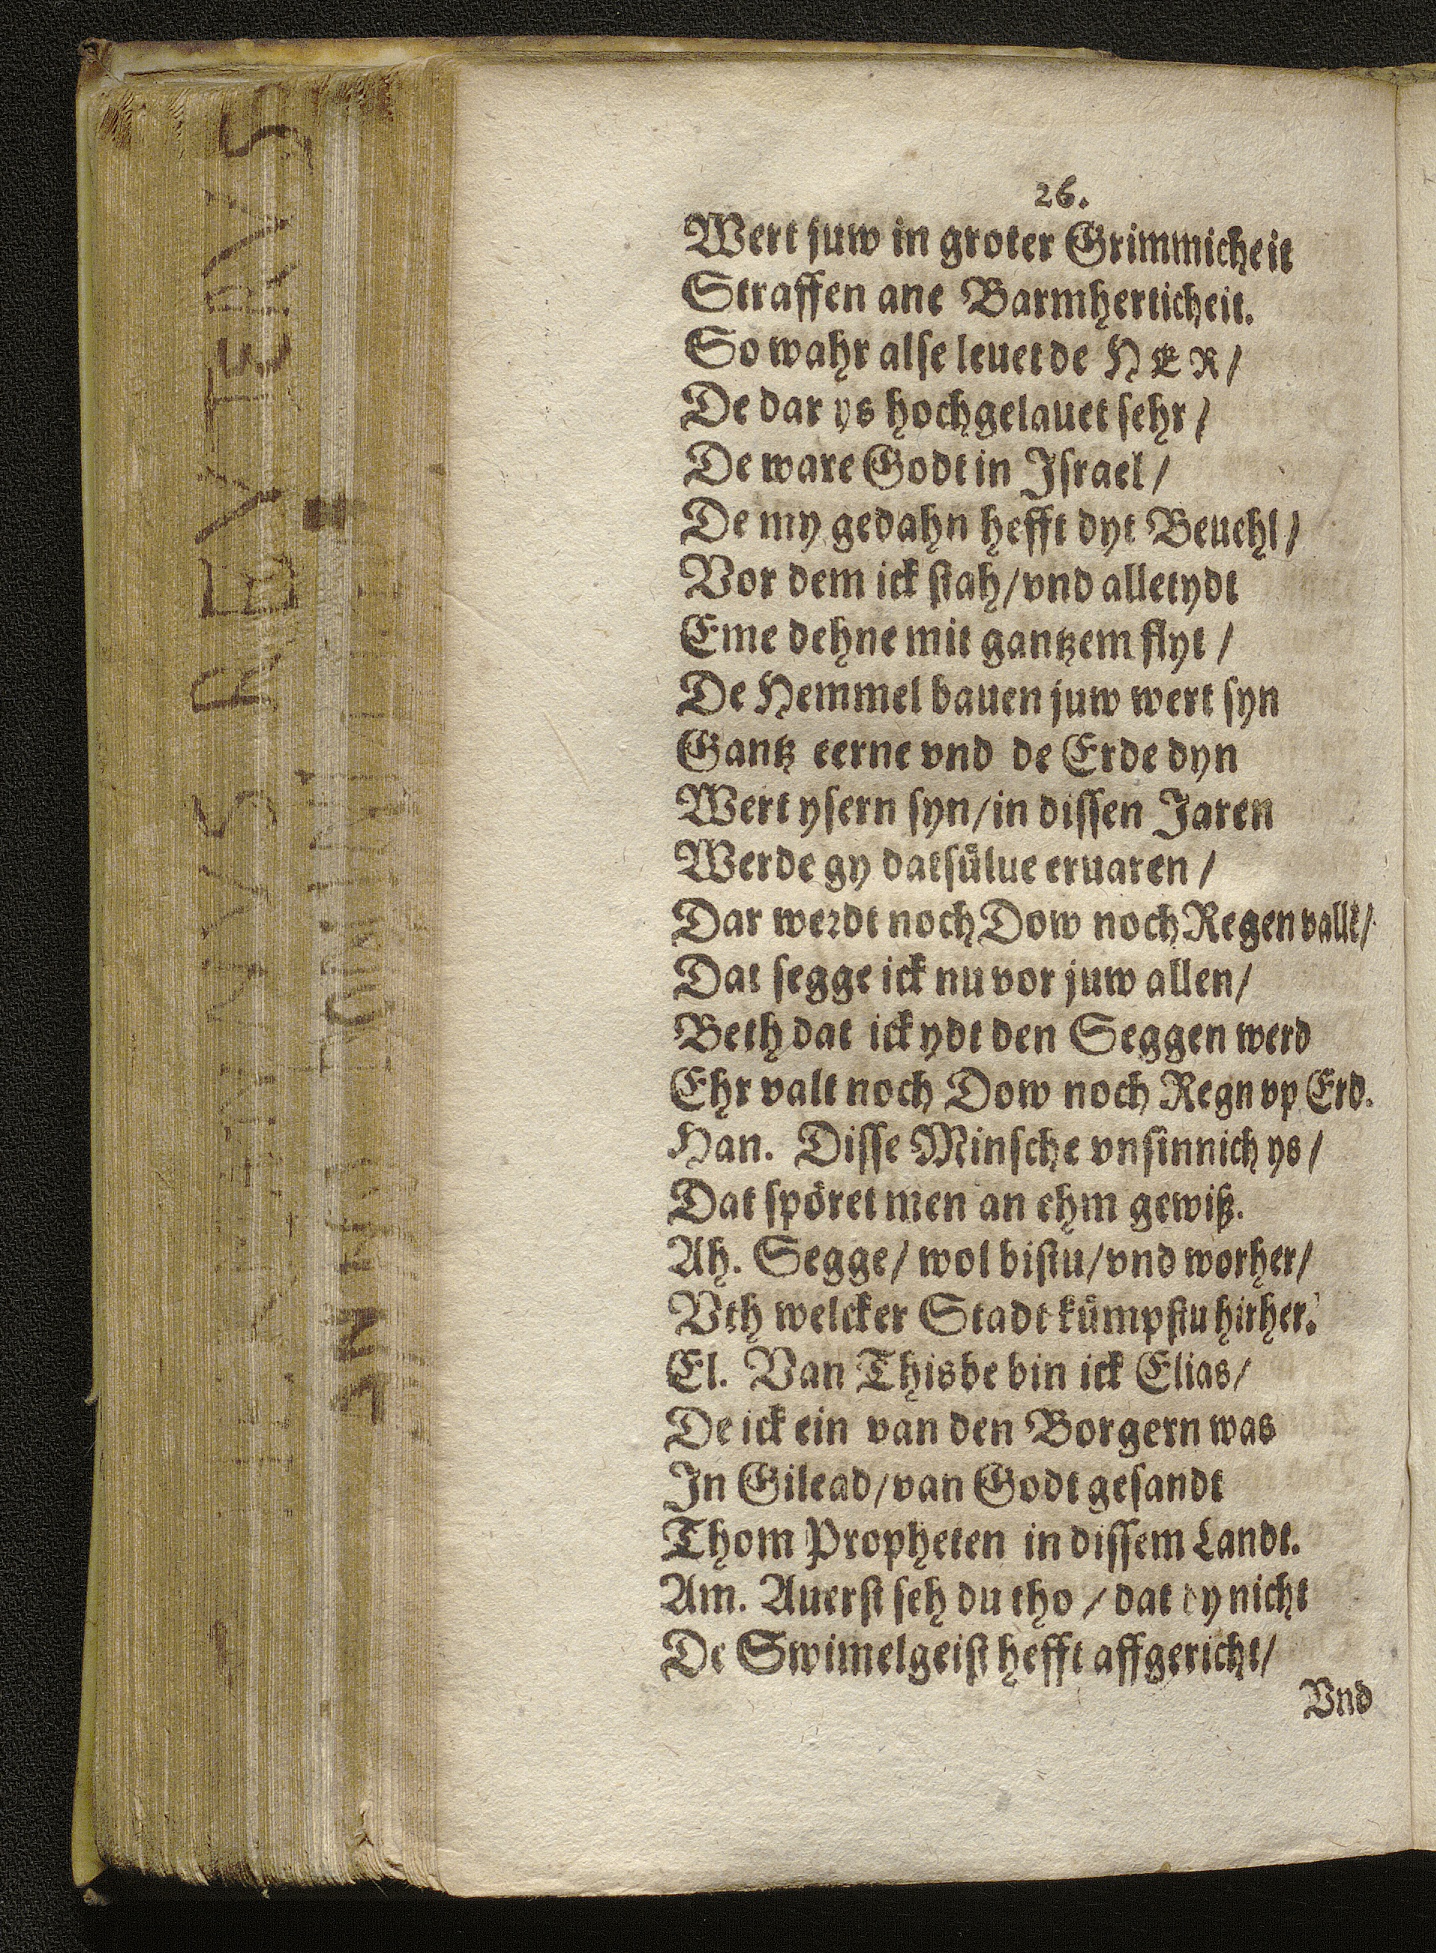 26.
Wert juw in groter Grimmicheit
Straffen ane Barmherticheit.
So wahr alse leuet de HER/
De dar ys hochgelauet sehr/
De ware Godt in Israel/
De my gedahn hefft dyt Beuehl/
Vor dem ick stah/vnd alletydt
Eme dehne mit gantzem flyt/
De Hemmel bauen juw wert syn
Gantz eerne vnd de Erde dyn
Wert ysern syn/in dissen Jaren
Werde gy datsülue eruaren/
Dar werdt noch Dow noch Regen vallē/
Dat segge ick nu vor juw allen/
Beth dat ick ydt den Seggen werd
Ehr valt noch Dow noch Regn vp Erd.
Han. Disse Minsche vnsinnich ys/
Dat spöret men an ehm gewiß.
Ah. Segge/ wol bistu/vnd worher/
Vth welcker Stadt kümpstu hirher?
El. Van Thisbe bin ick Elias/
De ick ein van den Borgern was
In Gilead/van Godt gesandt
Thom Propheten in dissem Landt.
Am. Auerst seh du tho/dat dy nicht
De Swimelgeist hefft affgericht/
Vnd
REVTERVS